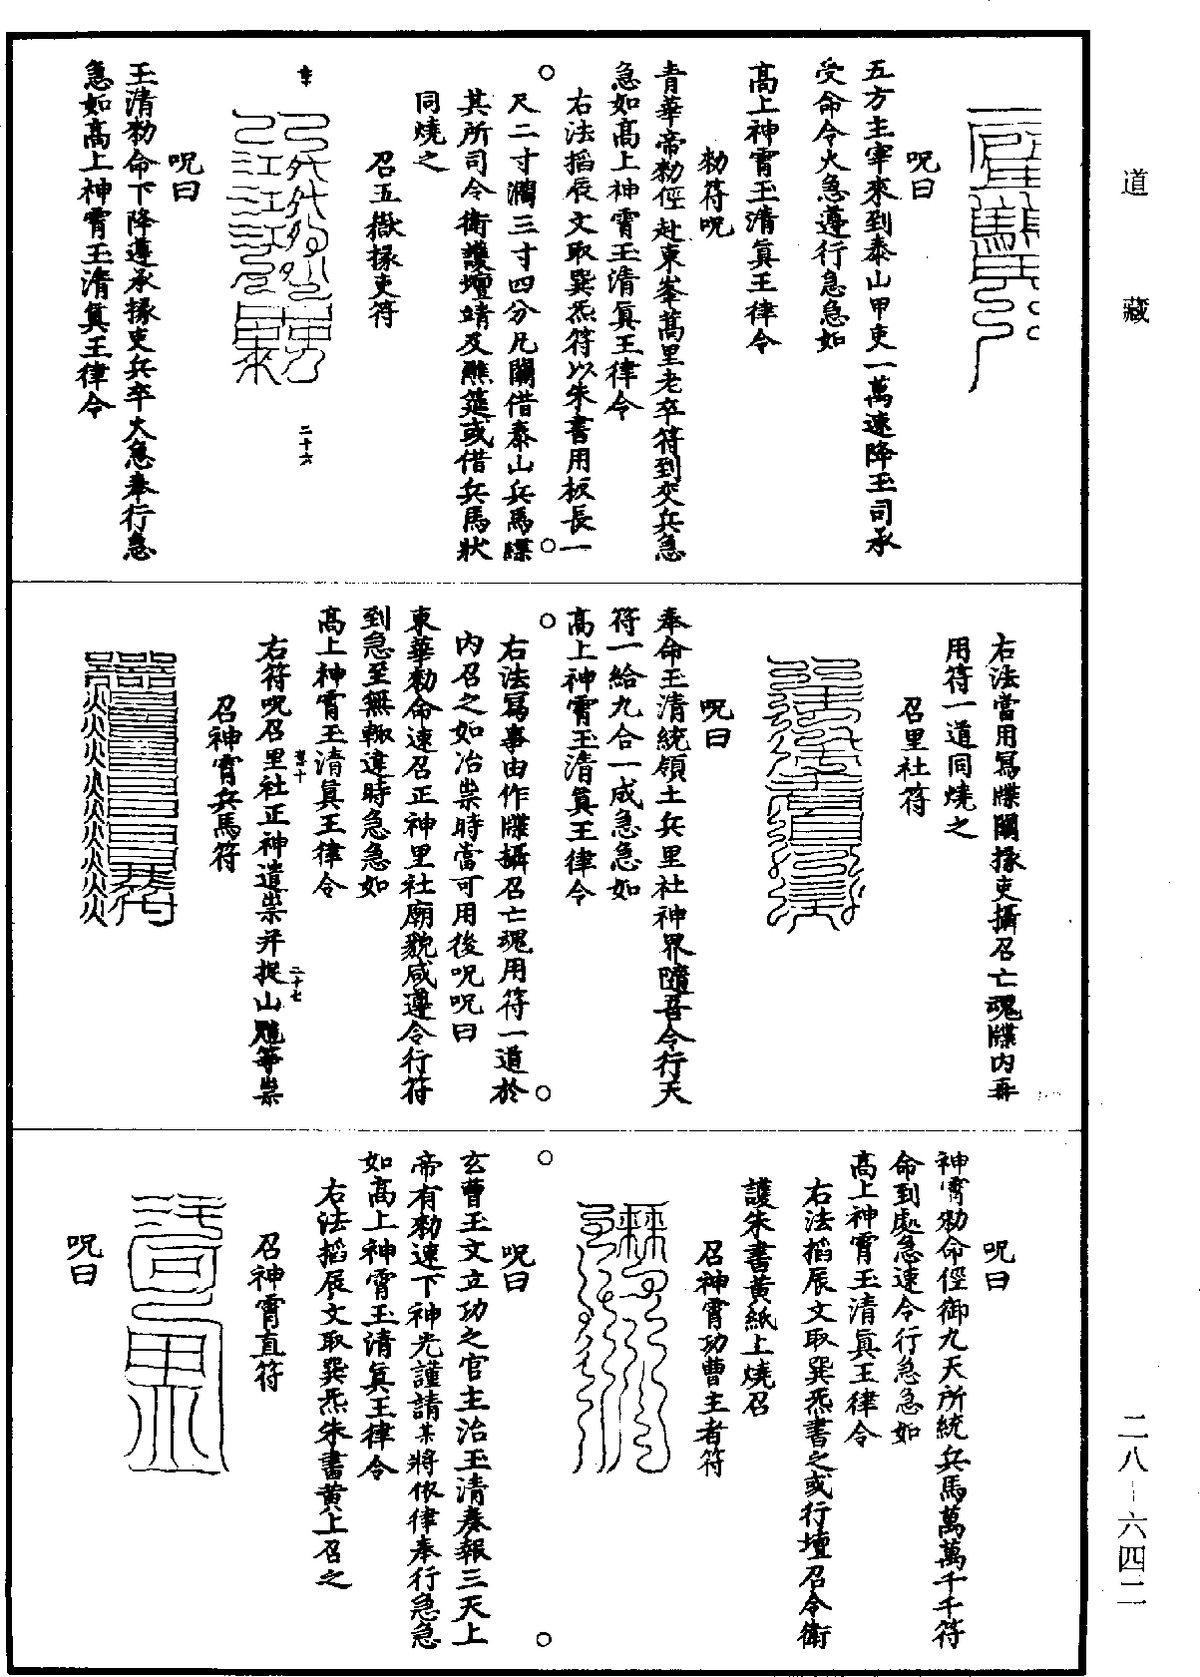 道藏
呪曰
五方主宰來到泰山甲吏一萬速降玉司承
受命令火急遵行急急如
高上神霄玉清眞王律令
勑符呪
青華帝勑徑赴東峯蒿里老卒符到交兵急
急如高上神霄玉清眞王律令
右法搯辰文取巽炁符以朱書用板長一
尺二寸濶三寸四分凡關借泰山兵馬牒
其所司令衛護壇靖及醮筵或借兵馬狀
同燒之
召五嶽掾吏符
二十六
呪曰
玉清勑命下降遵承掾吏兵卒火急奉行急
急如高上神霄玉清眞王律令
右法當用寫牒關掾吏攝召亡魂牒内再
用符一道同燒之
召里社符
呪曰
奉命玉清統領土兵里社神界隨吾令行天
符一給九合一成急急如
高上神霄玉清眞王律令
右法寫事由作牒攝召亡魂用符一道於
内召之如治祟時當可用後呪呪曰
東華勑命速召正神里社廟貌咸遵令行符
到急至無輙違時急急如
高上神霄玉清眞王律令
二十七
右符呪召里社正神遣祟并捉山魈等祟
召神霄兵馬符
呪曰
神霄勑命徑御九天所統兵馬萬萬千千符
命到處急速令行急急如
高上神霄玉清眞王律令
右法搯辰文取巽炁書之或行壇召令衛
護朱書黄紙上燒召
召神霄功曹主者符
呪曰
玄曹玉文立功之官主治玉清奏報三天上
帝有勑速下神光謹請某將依律奉行急急
如高上神霄玉清眞王律令
右法搯辰文取巽炁朱書黄上召之
召神霄直符
呪曰
二八-六四二